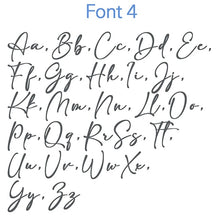 Font 4
Aa, Bb, Cc, Dd, Ee,
Ff, Gg, Hh, Ii, Jj,
Kk, Mm, Nn, Ll, Oo,
Pp, Qq, RrSs, Tt,
Uu, Vv, Ww Xx,
Yy, Zz